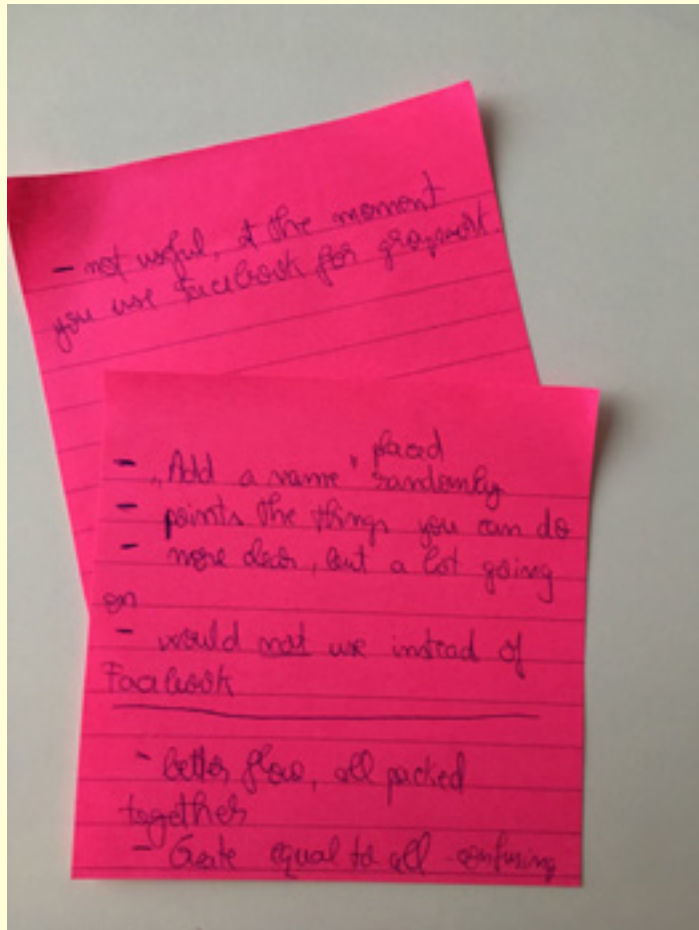 - not useful, at the moment
you use Facebook for groupwork.
- „Add a name" placed
randomly
- points the things you can do
- more clear, but a lot going
on
- would not use instead of
Facebook
- better flow, all packed
together
- Create equal to all - confusing